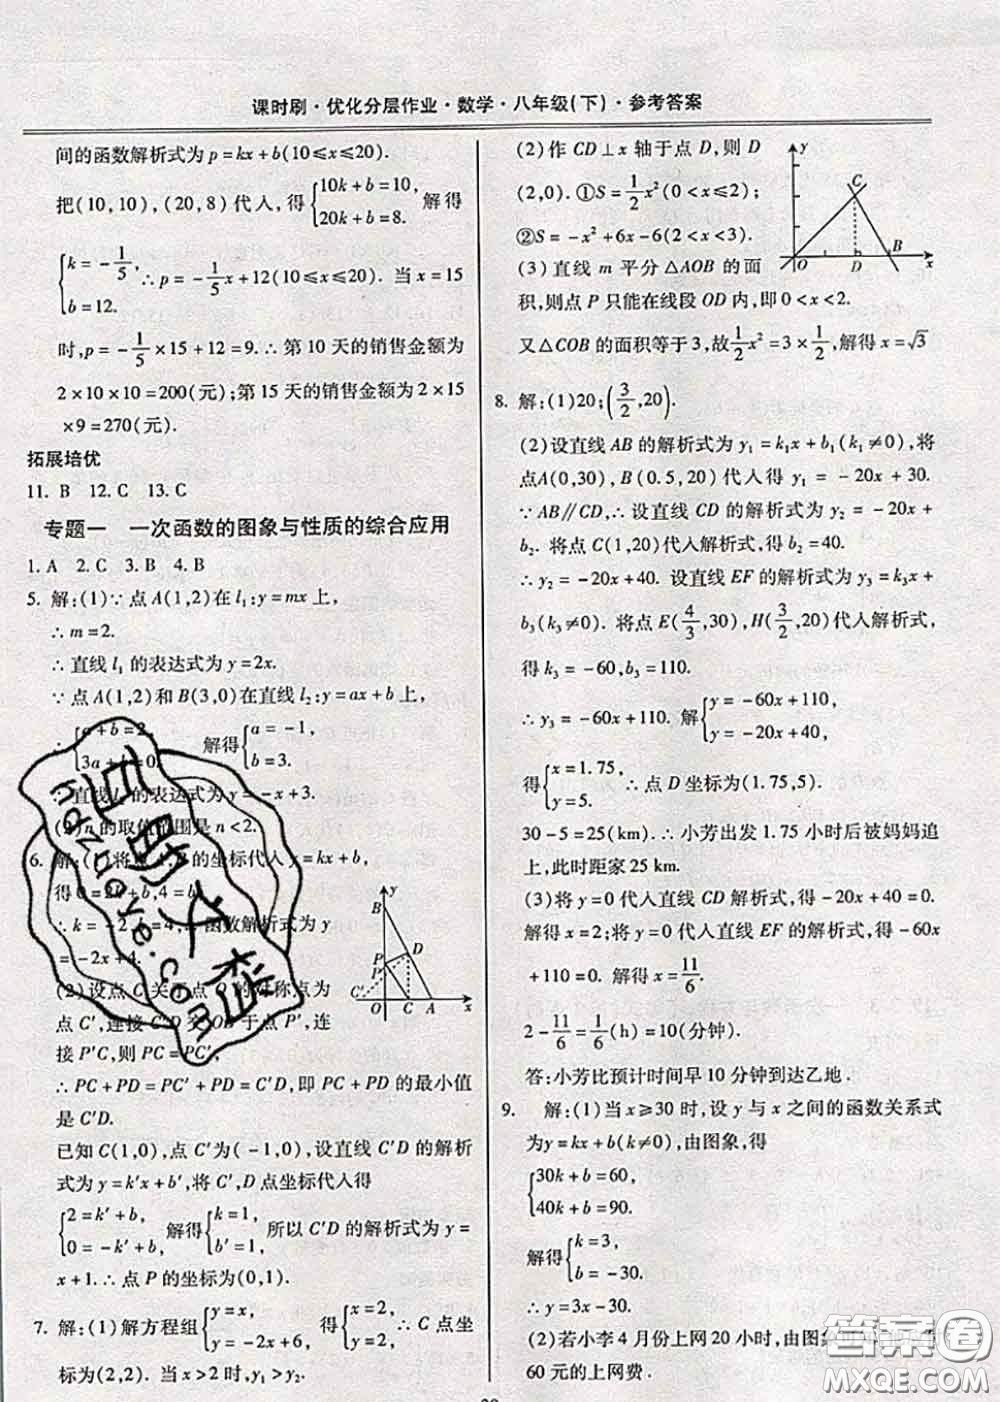 课时刷·优化分层作业·数学·八年级(下)·参考答案
间的函数解析式为p=kx+b(10≤x≤20).
把(10,10),(20,8)代入,得{10k+b=10, 20k+b=8. 解得
{k=-1/5, b=12. ∴p=-1/5x+12(10≤x≤20). 当x=15
时,p=-1/5×15+12=9.∴第10天的销售金额为
2×10×10=200(元);第15天的销售金额为2×15
×9=270(元).
拓展培优
11. B 12. C 13. C
专题一 一次函数的图象与性质的综合应用
1. A 2. C 3. B 4. B
5. 解:(1)∵点A(1,2)在l₁:y=mx上,
∴m=2.
∴直线l₁的表达式为y=2x.
∵点A(1,2)和B(3,0)在直线l₂:y=ax+b上,
∴{a+b=2, 3a+b=0. 解得{a=-1, b=3.
∴直线l₂的表达式为y=-x+3.
(2)n的取值范围是n<2.
6. 解:(1)将点 的坐标代入y=kx+b,
得0=2k+b,4=b,
∴k=-2, =4,∴函数解析式为y
=-2x+4.
(2)设点C关于点O的对称点为
点C′,连接C′D交OB于点P′,连
接P′C,则PC=PC′,
∴PC+PD=PC′+PD=C′D,即PC+PD的最小值
是C′D.
已知C(1,0),点C′(-1,0),设直线C′D的解析
式为y=k′x+b′,将C′,D点坐标代入得
{2=k′+b′, 0=-k′+b′, 解得{k=1, b′=1. 所以C′D的解析式为y=
x+1.∴点P的坐标为(0,1).
y
B
D
P
P′
C′
O
C
A
x
7. 解:(1)解方程组{y=x, y=-2x+6, 得{x=2, y=2. ∴C点坐
标为(2,2). 当x>2时,y₁>y₂.
(2)作CD⊥x轴于点D,则D
(2,0).①S=1/2x²(0<x≤2);
②S=-x²+6x-6(2<x<3).
(3)直线m平分△AOB的面
积,则点P只能在线段OD内,即0<x<2.
又△COB的面积等于3,故1/2x²=3×1/2,解得x=√3
y
C
B
O
D
x
8. 解:(1)20;(3/2,20).
(2)设直线AB的解析式为y₁=k₁x+b₁(k₁≠0),将
点A(0,30),B(0.5,20)代入得y₁=-20x+30.
∵AB∥CD,∴设直线CD的解析式为y₂=-20x
+b₂. 将点C(1,20)代入解析式,得b₂=40.
∴y₂=-20x+40. 设直线EF的解析式为y₃=k₃x+
b₃(k₃≠0). 将点E(4/3,30),H(3/2,20)代入解析式,
得k₃=-60,b₃=110.
∴y₃=-60x+110. 解{y=-60x+110, y=-20x+40,
得{x=1.75, y=5. ∴点D坐标为(1.75,5).
30-5=25(km).∴小芳出发1.75小时后被妈妈追
上,此时距家25 km.
(3)将y=0代入直线CD解析式,得-20x+40=0.
解得x=2;将y=0代入直线EF的解析式,得-60x
+110=0. 解得x=11/6.
2-11/6=1/6(h)=10(分钟).
答:小芳比预计时间早10分钟到达乙地.
9. 解:(1)当x≥30时,设y与x之间的函数关系式
为y=kx+b(k≠0),由图象,得
{30k+b=60, 40k+b=90.
解得{k=3, b=-30.
∴y=3x-30.
(2)若小李4月份上网20小时,由图象
60元的上网费.
答案卷
MXQE.COM